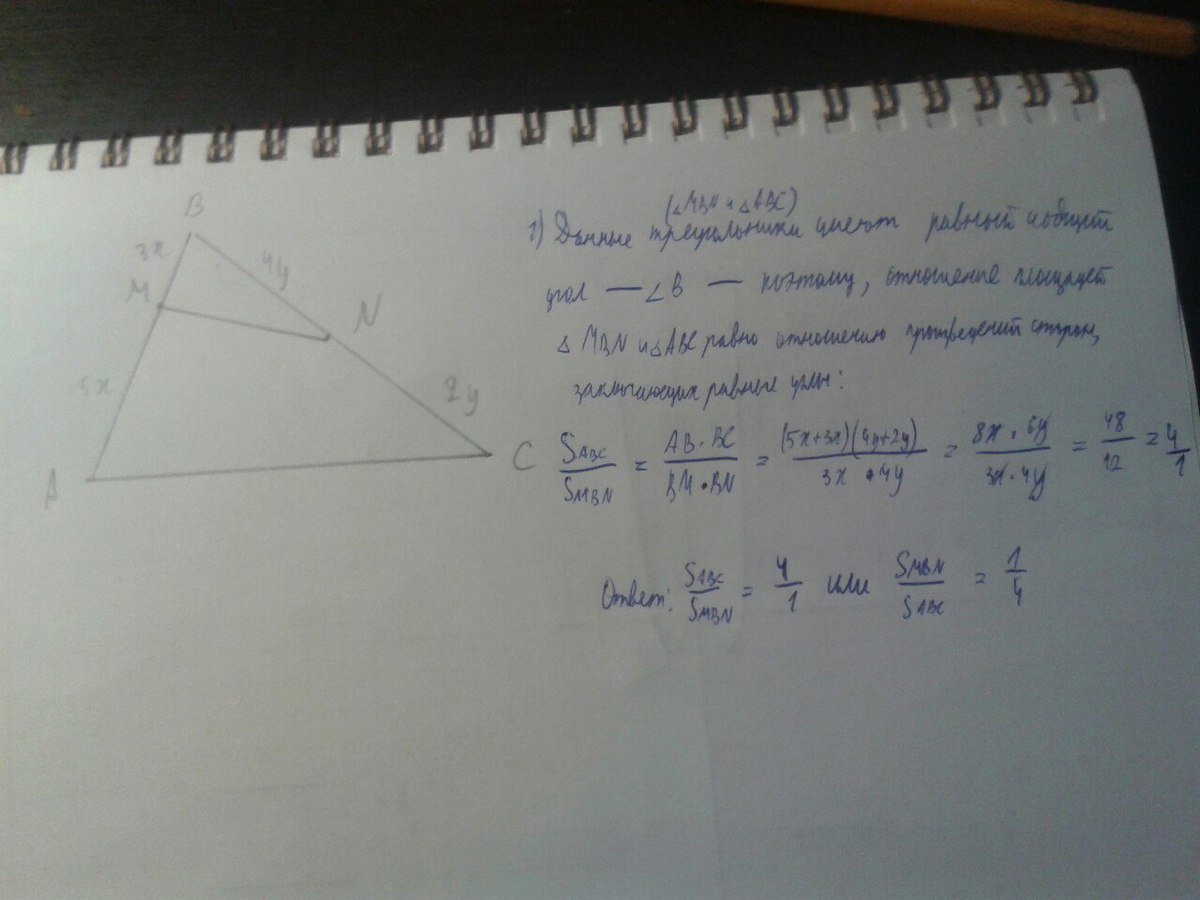 B
3x
4y
M
N
5x
2y
A
C
(△MBN и △ABC)
1) Данные треугольники имеют равный и общий
угол — ∠B — поэтому, отношение площадей
△ MBN и △ABC равно отношению произведений сторон,
заключающих равные углы:
S_ABC / S_MBN = AB · BC / BM · BN = (5x+3x)(4y+2y) / 3x · 4y = 8x · 6y / 3x · 4y = 48 / 12 = 4 / 1
Ответ: S_ABC / S_MBN = 4 / 1 или S_MBN / S_ABC = 1 / 4